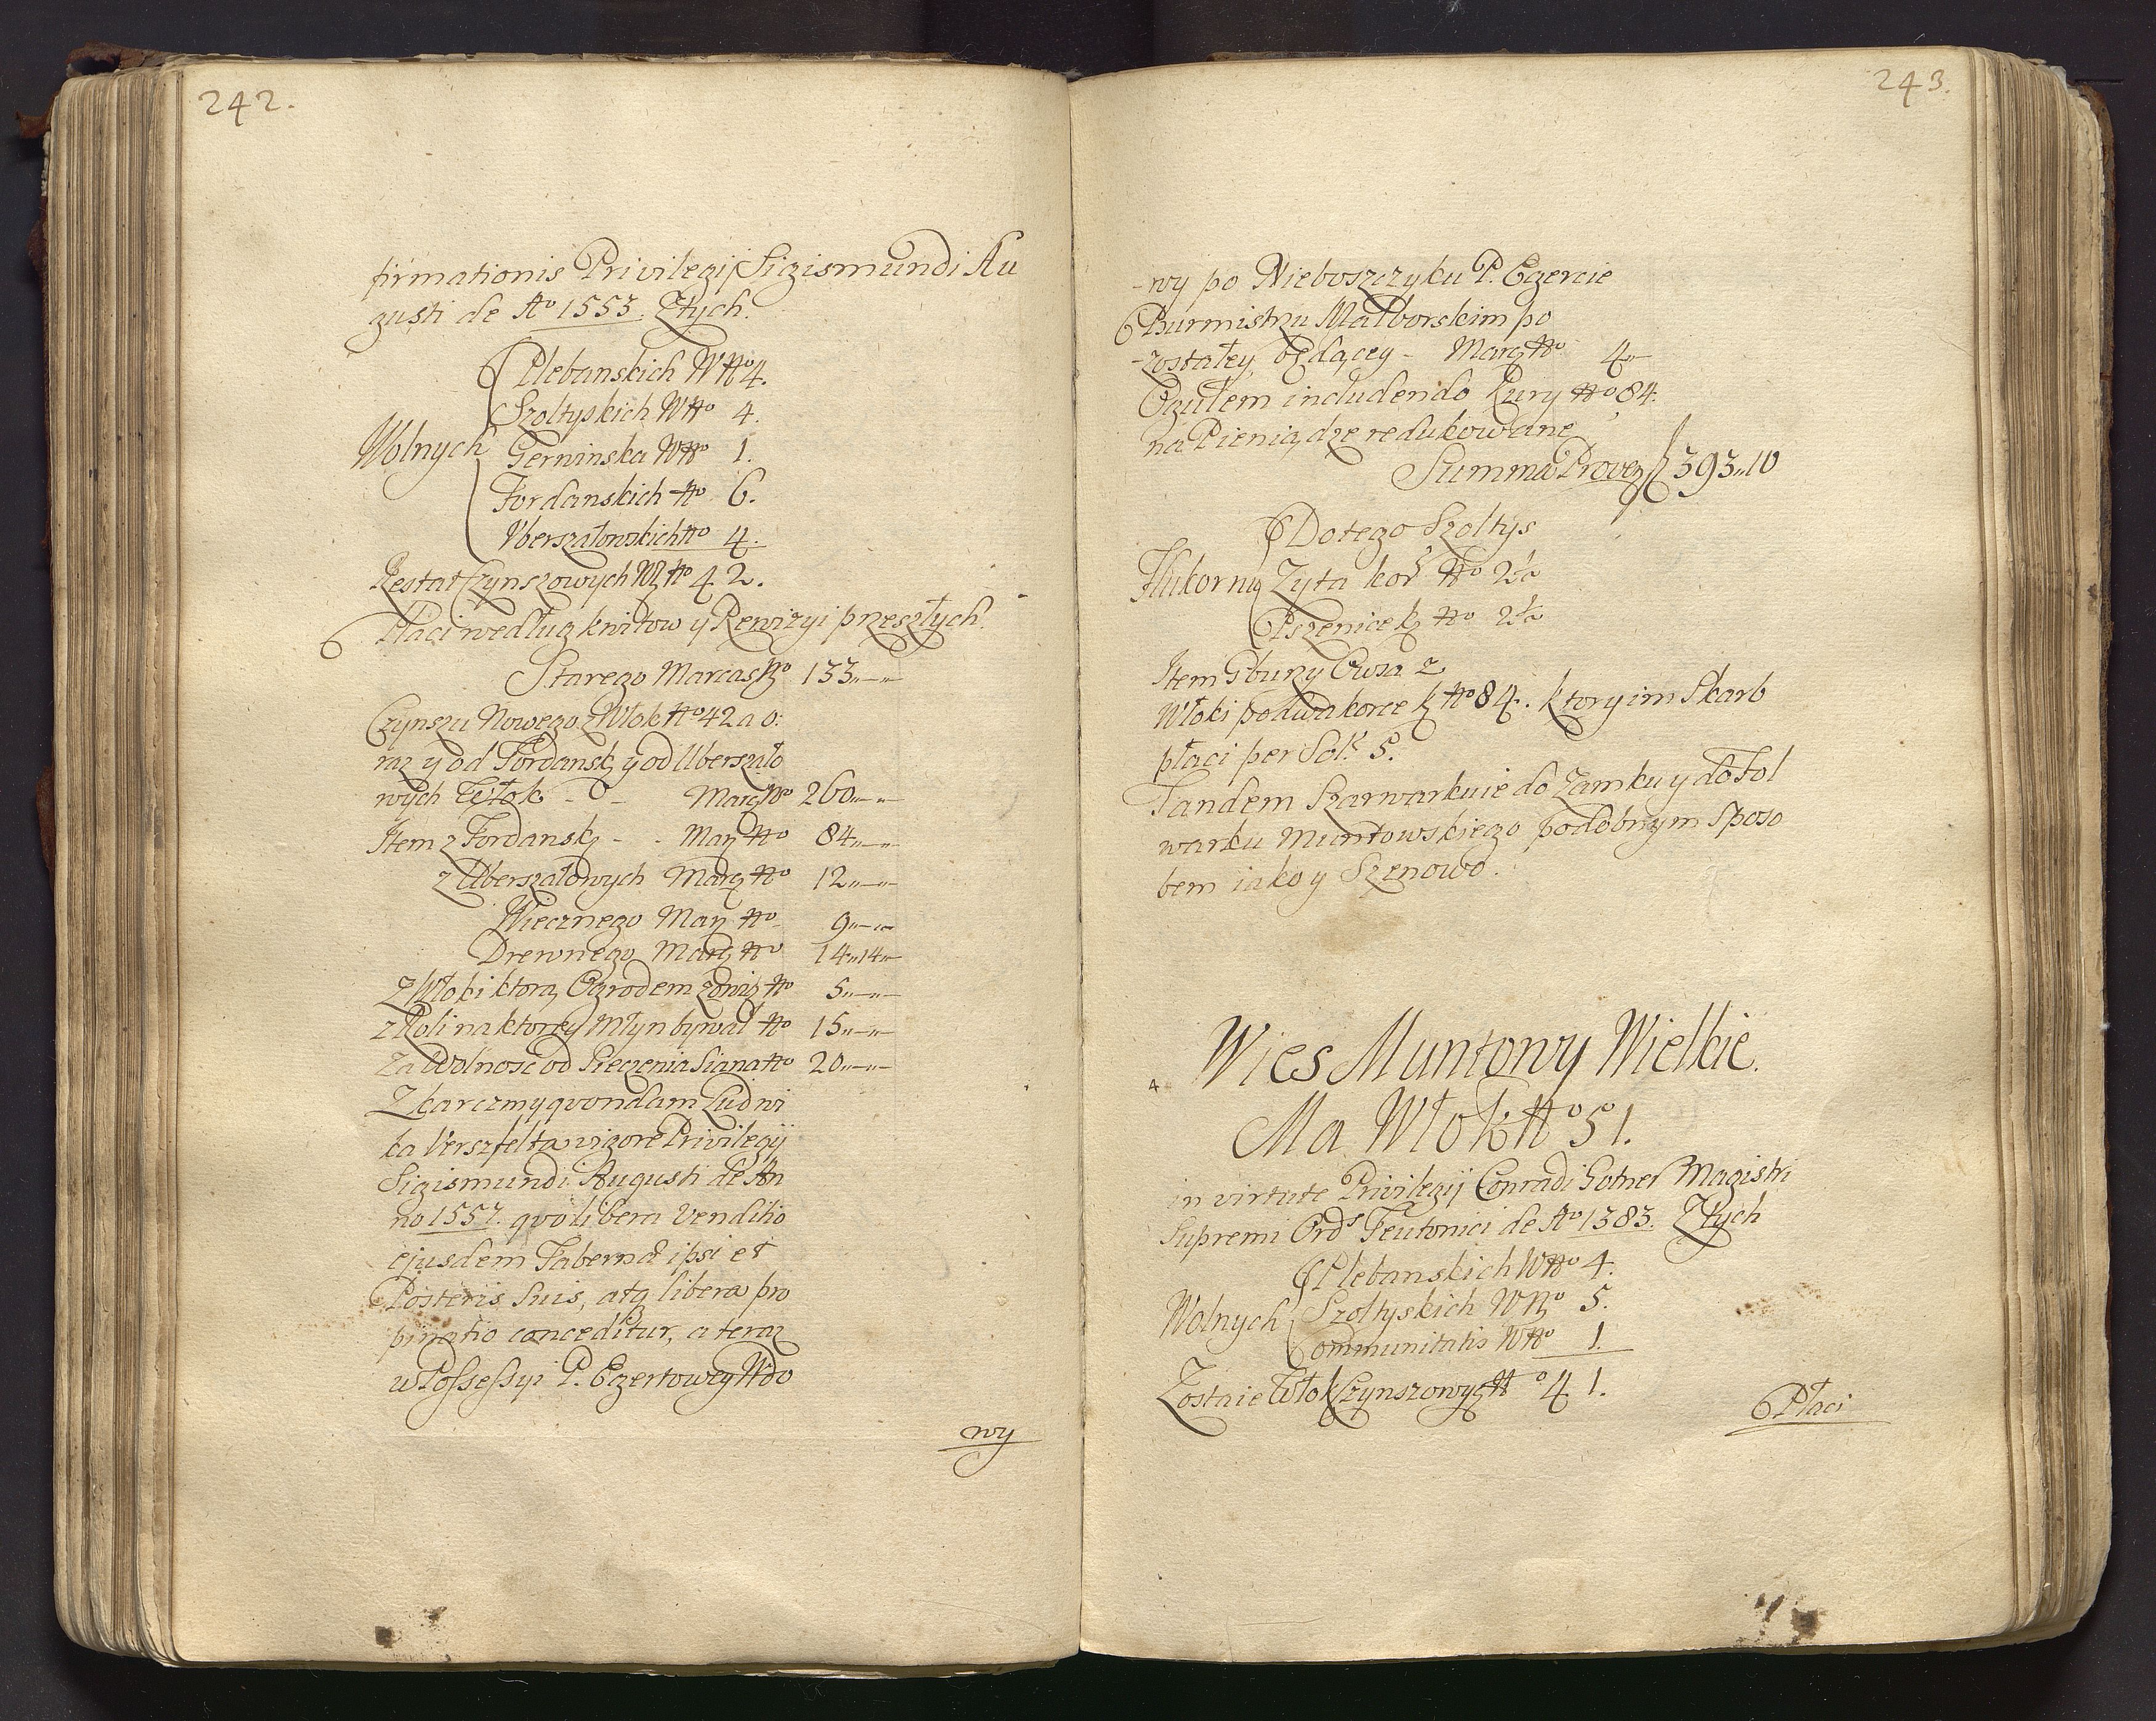 242.
firmationis Privilegij Sigismundi Au
gusti de Ao 1553. Ztych.
Plebanskich W No 4.
Szoltyskich W No 4.
Wolnych Gerninska W No 1.
Jordanskich No 6.
Vberszalowskich No 4.
Restat Czynszowych Wł No 42.
Płaci według kwitow y Rewizyi przeszłych.
Starego Marcas No 133„—„—
Czynszu Nowego z Włok No 42 a o:
raz y od Jordansk y od Uberszało
wych Włok - - Marg No 260„—„—
Item z Jordansk - - Mar No 84„—„—
z Uberszałowych Marg No 12„—„—
Wiecznego Mar No 9„—„—
Drewnego Marg No 14„14„—
Z Włoki ktorą Ogrodem zowią No 5„—„—
z Roli na ktorey Młyn bywał No 15„—„—
Za Wolnosc od Sieczenia Siana No 20„—„—
Z karczmy qvondam Ludwi
ka Verszfelta vigore Privilegij
Sigismundi Augusti de An
no 1557. qvo libera Venditio
ejusdem Tabernæ ipsi et
Posteris Suis, atq libera pro
pinatio conceditur, a teraz
w Possessyi P. Egertowey Wdo
wy
243.
-wy po Nieboszczyku P. Egercie
Burmistrzu Malborskim po
-zostałey, będącey - Marg No 4„—
Ogułem includendo kury No 84.
na Pieniądze redukowane
Summa Proven 393„10
Do tego Szoltys
Hukornu Zyta kor No 2½
Pszenice k No 2½
Item Gbury Owsa z
Włoki po dwa korce k No 84. ktory im Skarb
płaci per Sol. 5.
Tandem Szarwarkuie do Zamku y do Fol
warku Muntowskiego podobnym Sposo
bem iako y Szenowo.
4 Wies Muntowy Wielkie.
Ma Włok No 51.
in virtute Privilegij Conradi Sotner Magistri
Supremi Ords Teutonici de Ao 1383. Ztych
Plebanskich W No 4.
Wolnych Szoltyskich W No 5.
Communitatis W No 1.
Zostaie Włok Czynszowych No 41.
Płaci